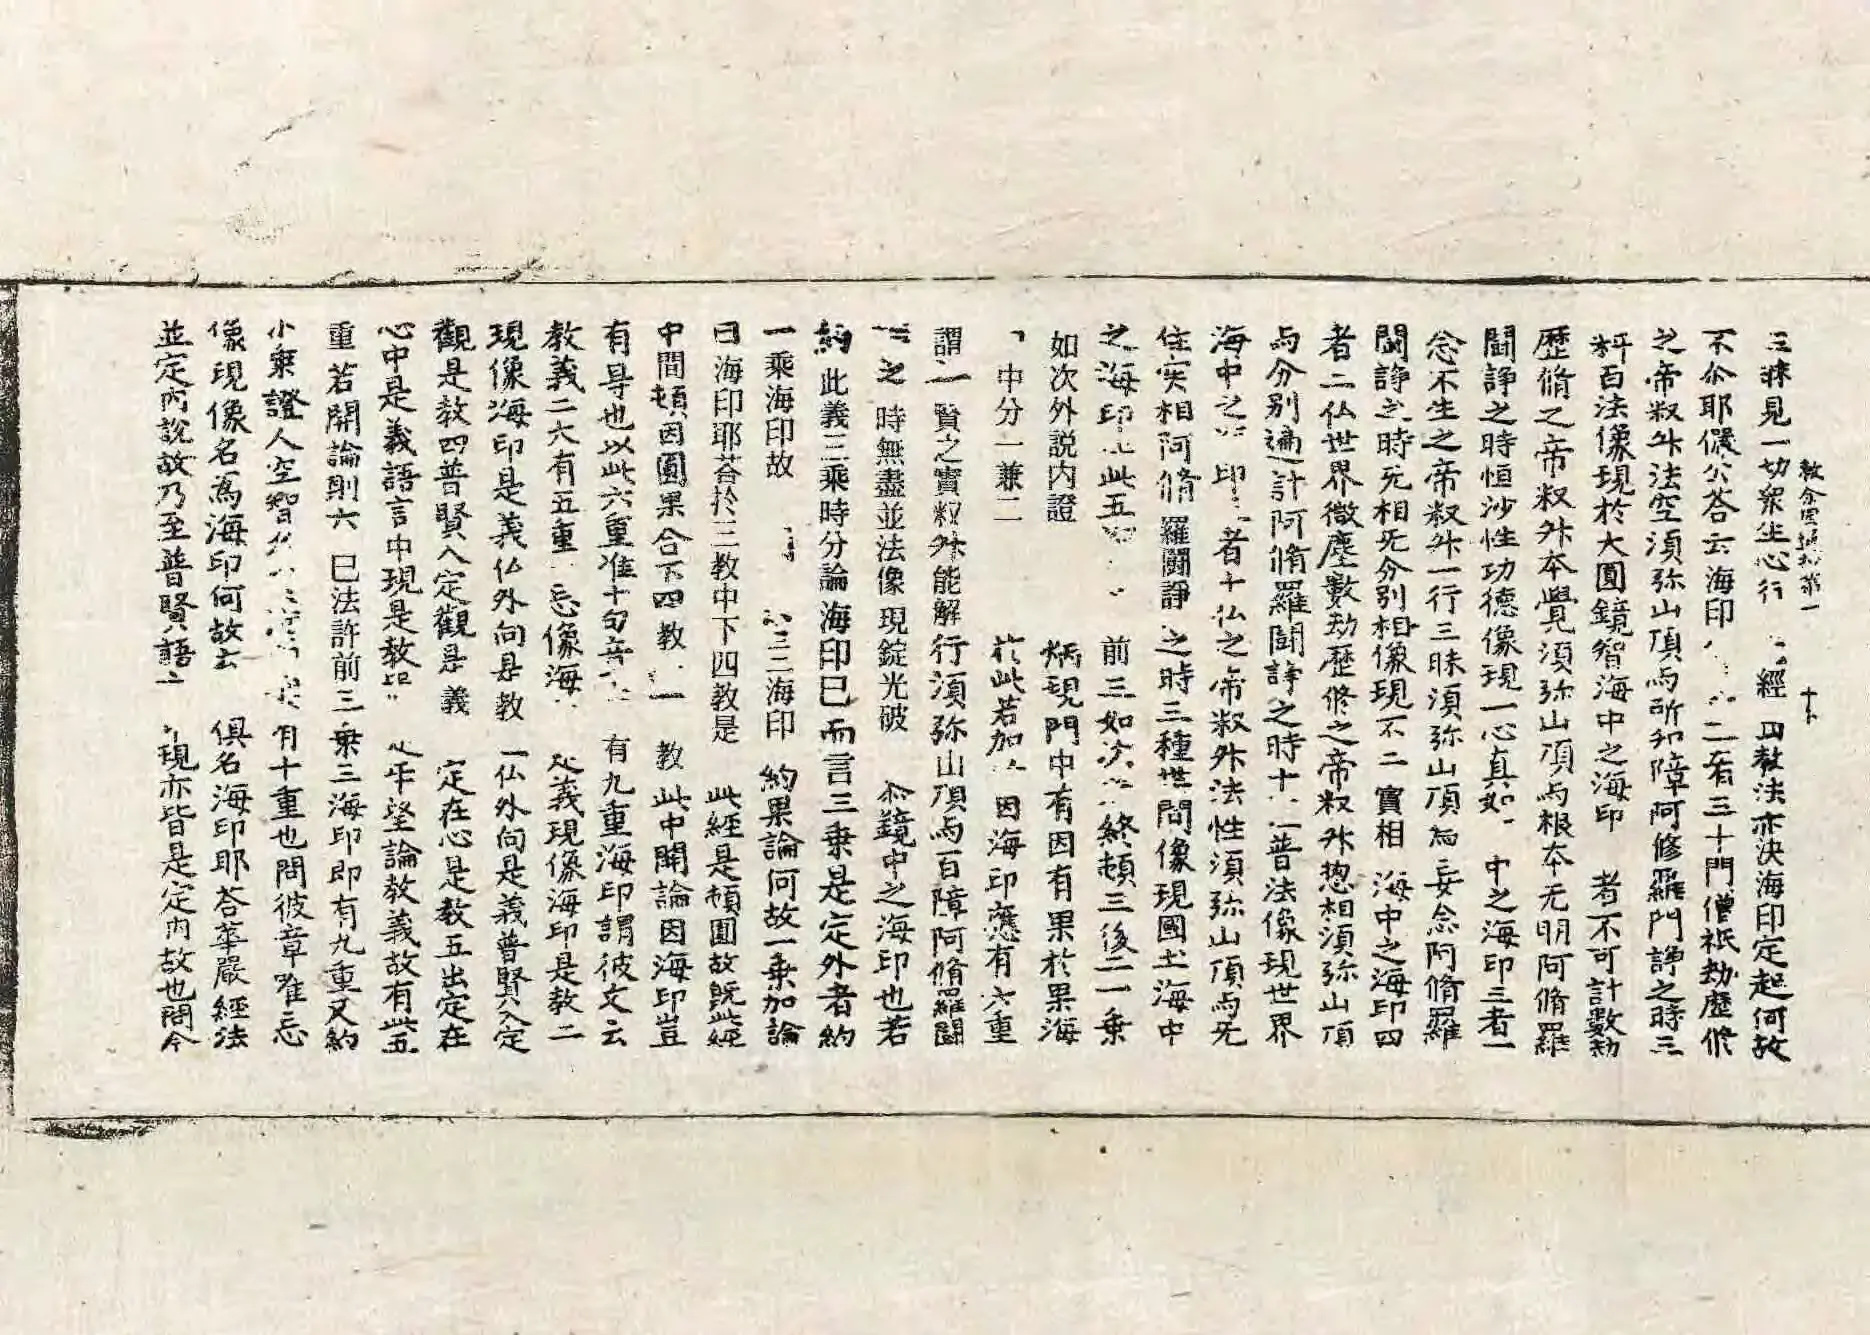 三昧見一切衆生心行 經 四教法亦決海印定起何故
教分圓通抄第一 十卜
不尒耶儼公荅云海印 二有三十門僧祇劫歷修
之帝叔外法空須弥山頂与所知障阿修羅鬥諍之時三
科百法像現於大圓鏡智海中之海印 者不可計數劫
歷脩之帝叔外本覺須弥山頂与根本无明阿脩羅
鬪諍之時恒沙性功德像現一心真如 中之海印三者一
念不生之帝叔外一行三昧須弥山頂与妄念阿脩羅
鬪諍之時无相无分別相像現不二實相 海中之海印四
者二仏世界微塵數劫歷修之帝叔外惣相須弥山頂
与分別遍計阿脩羅鬪諍之時十 普法像現世界
海中之 印 者十仏之帝叔外法性須弥山頂与无
住实相阿脩羅鬪諍之時三種世間像現國土海中
之海印 此五 前三如次 終頓三後二一乗
如次外説内證 炳現門中有因有果於果海
中分一兼二 於此若加 因海印應有六重
謂 賢之實叔外能解行須弥山頂与百障阿脩羅鬪
之時無盡並法像現錠光破 鏡中之海印也若
約此義三乘時分論海印已而言三乗是定外者約
一乘海印故 三海印 約果論何故一乗加論
因海印耶荅扵三教中下四教是 此經是頓圓故旣此經
中間頓因圓果合下四教 教此中開論因海印豈
有㝵也以此六重准十句章 有九重海印謂彼文云
教義二六有五重 忘像海 義現像海印是教二
現像海印是義仏外向是教 一仏外向是義普賢入定
觀是教四普賢入定觀是義 定在心是教五出定在
心中是義語言中現是教 竪論教義故有此五
重若開論則六 已法許前三乗三海印即有九重又約
小乗證人空智 有十重也問彼章唯忘
像現像名爲海印何故云 俱名海印耶荅華嚴經法
並定内說故乃至普賢語 現亦皆是定内故也問今